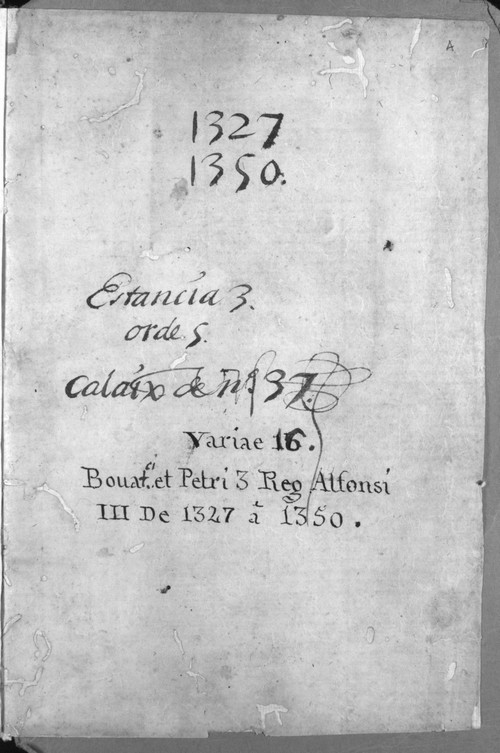 A
1327
1350.
Estancia 3.
orde 5.
Calaix de nº 37.
Variae 16.
Bouat.ci et Petri 3 Reg Alfonsi
III De 1327 â 1350.